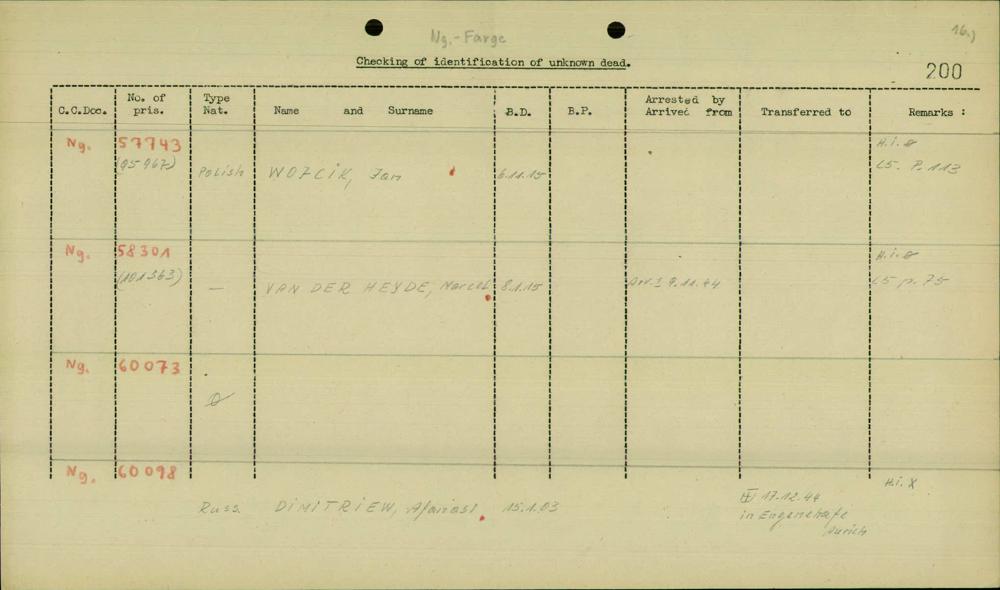 Ng.-Farge
16.)
Checking of identification of unknown dead.
200
C.C.Doc. No. of pris. Type Nat. Name and Surname B.D. B.P. Arrested by Arrived from Transferred to Remarks :
Ng. 57743 H.i.
(95967) Polish WOZCIK, Jan 6.11.15 L5. P. 113
Ng. 58301 H.i.
(101563) — VAN DER HEYDE, Marcel 8.1.15 Arr. 9.11.44 L5 p. 75
Ng. 60073
Ng. 60098 H.i. X
Russ. DIMITRIEW, Afanasi 15.1.03 17.12.44
in Engerhafe
Aurich